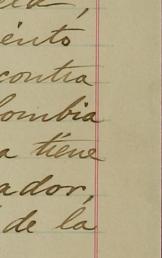 ento
contra
lombia
a tiene
ador,
de la